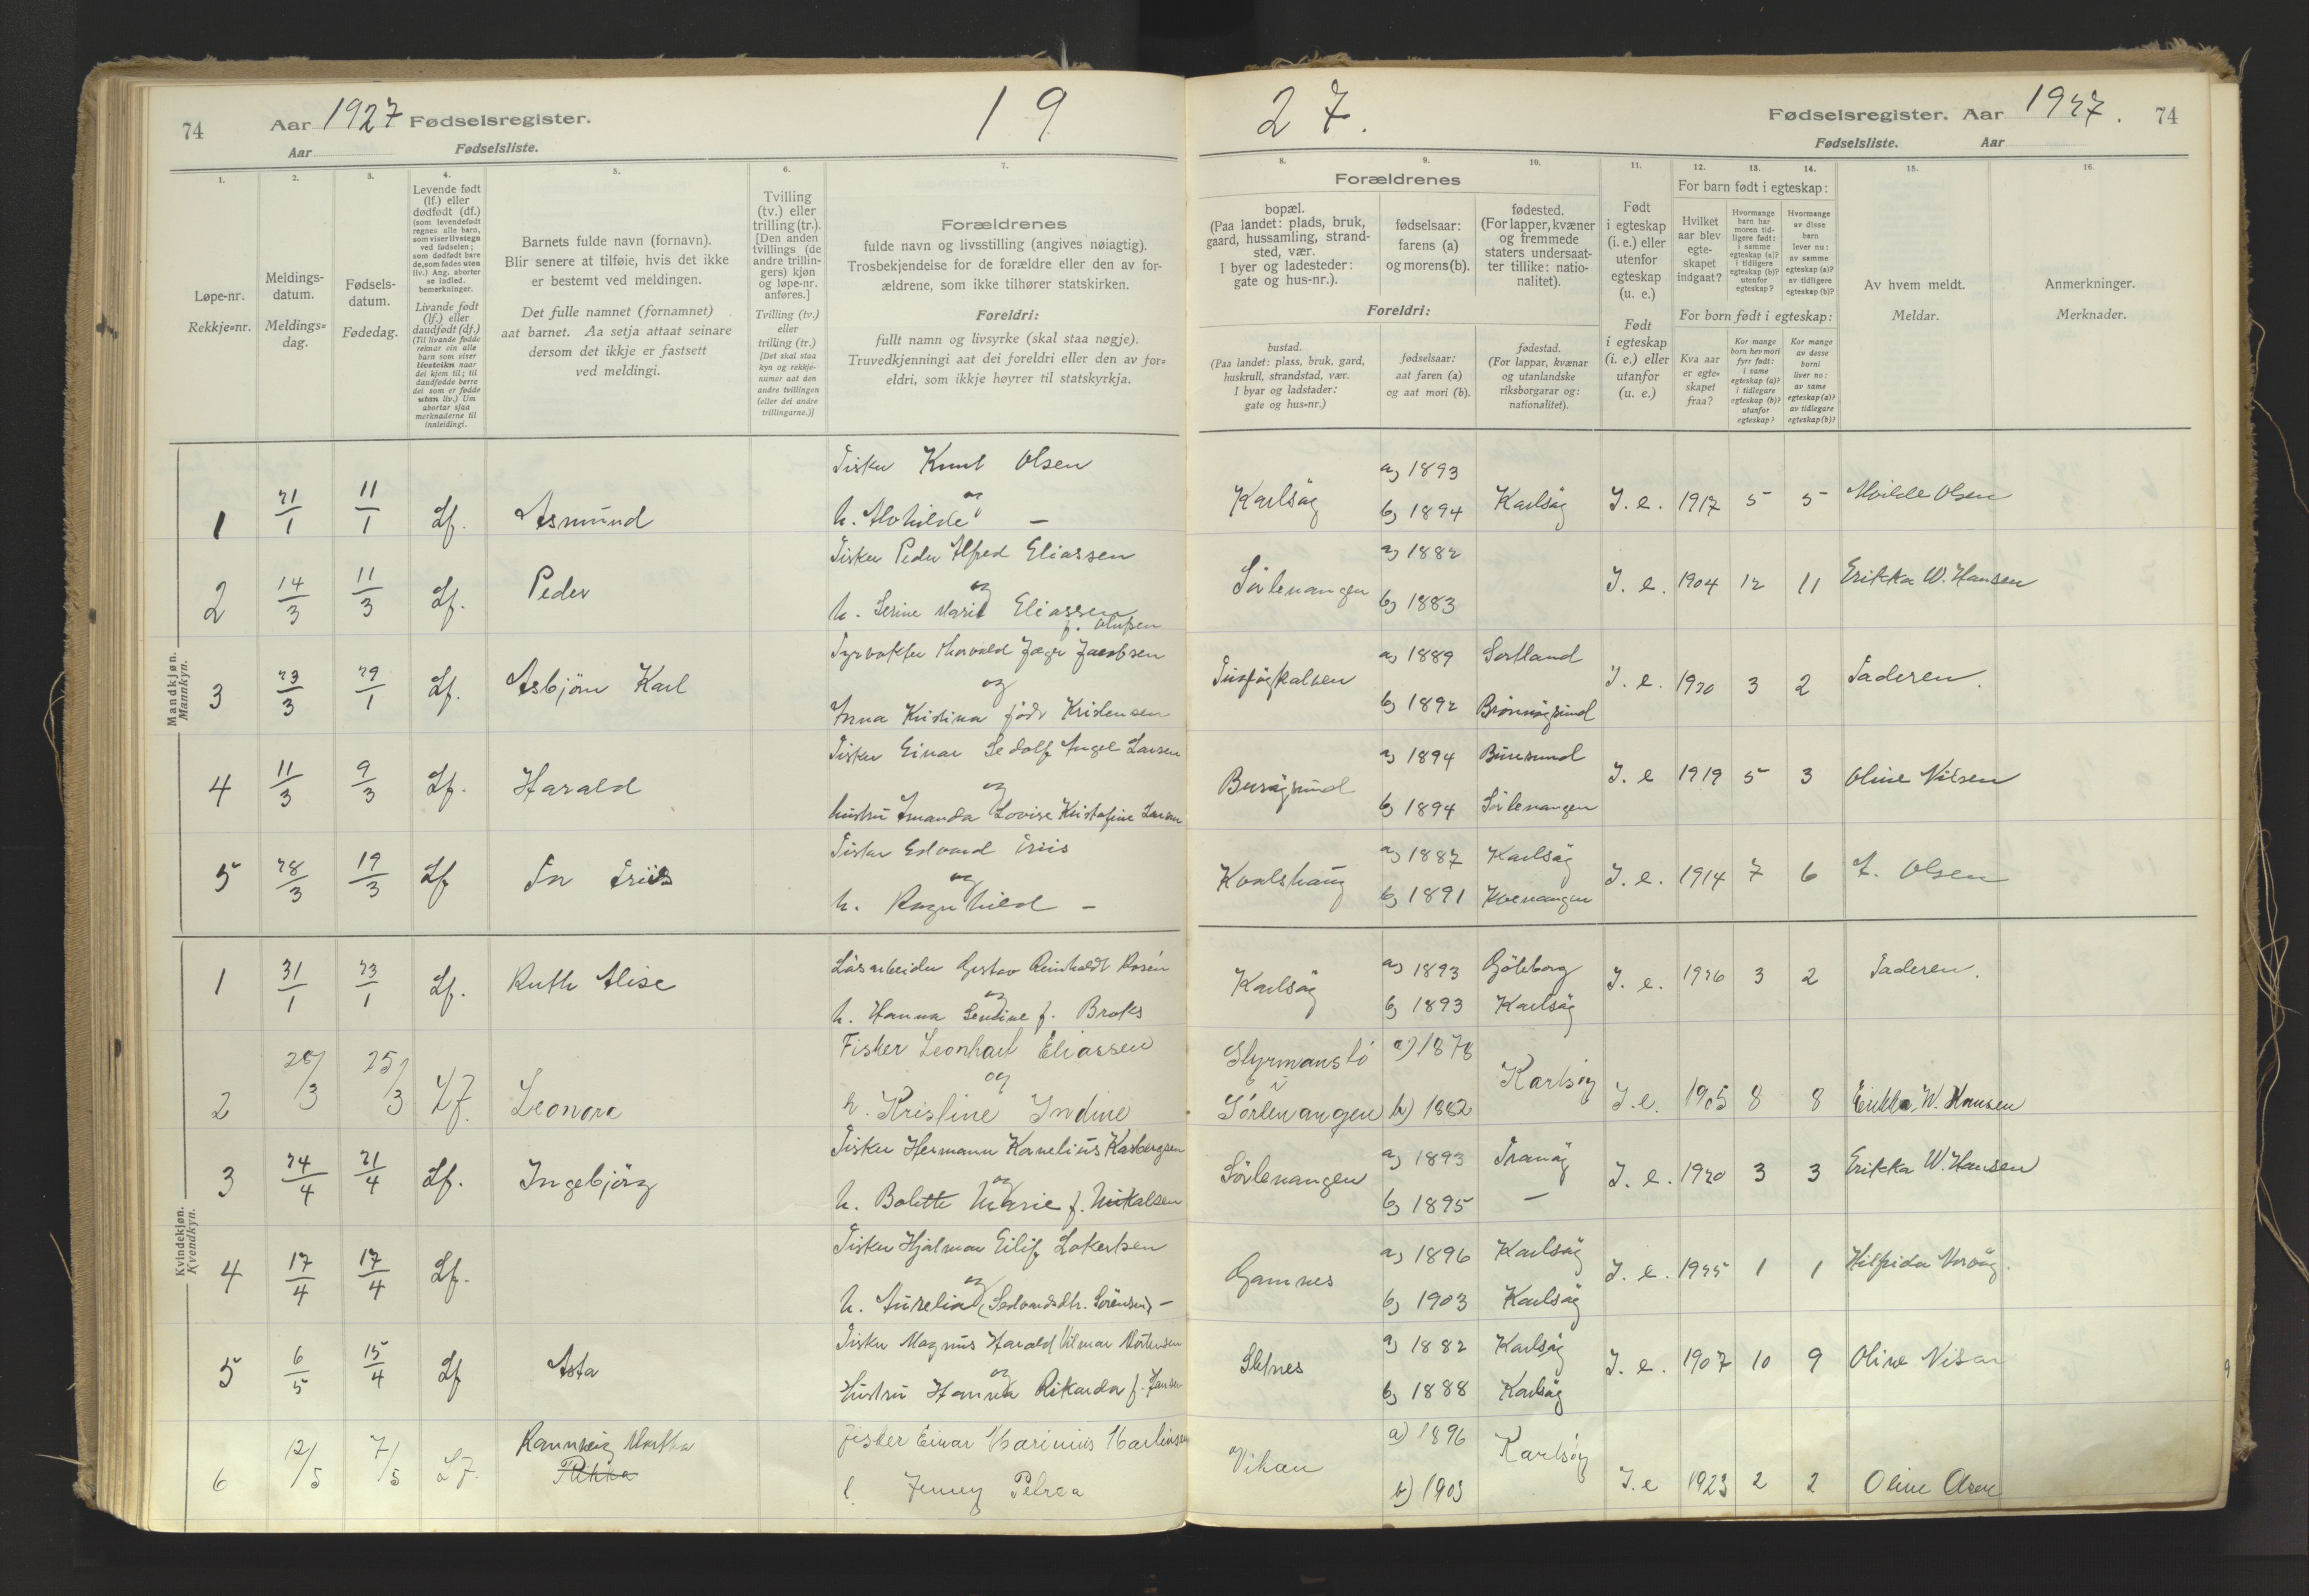 74 Aar 1927 Fødselsregister. 19
Aar Fødselsliste.
27. Fødselsregister. Aar 1927. 74
Fødselsliste. Aar
1. 2. 3. 4. 5. 6. 7.
Løpe-nr.
Rekkje=nr.
Meldings-
datum.
Meldings=
dag.
Fødsels-
datum.
Fødedag.
Levende født
(lf.) eller
dødfødt (df.)
(som levendefødt
regnes alle barn,
som viser livstegn
ved fødselen;
som dødfødt bare
de, som fødes uten
liv.) Ang. aborter
se indled.
bemerkninger.
Livande født
(lf.) eller
daudfødt (df.)
(Til livande fødde
reknar ein alle
barn som viser
livsteikn naar
dei kjem til; til
daudfødde berre
dei som er fødde
utan liv.) Um
abortar sjaa
merknaderne til
innleidingi.
Barnets fulde navn (fornavn).
Blir senere at tilføie, hvis det ikke
er bestemt ved meldingen.
Det fulle namnet (fornamnet)
aat barnet. Aa setja attaat seinare
dersom det ikkje er fastsett
ved meldingi.
Tvilling
(tv.) eller
trilling (tr.).
[Den anden
tvillings (de
andre trillin-
gers) kjøn
og løpe-nr.
anføres.]
Tvilling (tv.)
eller
trilling (tr.)
[Det skal staa
kyn og rekkje-
numer aat den
andre tvillingen
(eller dei andre
trillingarne.)]
Forældrenes
fulde navn og livsstilling (angives nøiagtig).
Trosbekjendelse for de forældre eller den av for-
ældrene, som ikke tilhører statskirken.
Foreldri:
fullt namn og livsyrke (skal staa nøgje).
Truvedkjenningi aat dei foreldri eller den av for=
eldri, som ikkje høyrer til statskyrkja.
8. 9. 10. 11. 12. 13. 14. 15. 16.
Forældrenes
bopæl.
(Paa landet: plads, bruk,
gaard, hussamling, strand-
sted, vær.
I byer og ladesteder:
gate og hus-nr.).
fødselsaar:
farens (a)
og morens (b).
fødested.
(For lapper, kvæner
og fremmede
staters undersaat-
ter tillike: natio-
nalitet).
Foreldri:
bustad.
(Paa landet: plass, bruk, gard,
huskrull, strandstad, vær.
I byar og ladstader:
gate og hus=nr.)
fødselsaar:
aat faren (a)
og aat mori (b).
fødestad.
(For lappar, kvænar
og utanlandske
riksborgarar og:
nationalitet).
Født
i egteskap
(i. e.) eller
utenfor
egteskap
(u. e.)
Født
i egteskap
(i. e.) eller
utanfor
(u. e.)
For barn født i egteskap:
Hvilket
aar blev
egte-
skapet
indgaat?
Hvormange
barn har
moren tid-
ligere født:
i samme
egteskap (a)?
i tidligere
egteskap (b)?
utenfor
egteskap?
Hvormange
av disse
barn
lever nu:
av samme
egteskap (a)?
av tidligere
egteskap (b)?
For born født i egteskap:
Kva aar
er egte=
skapet
fraa?
Kor mange
born hev mori
fyrr født:
i same
egteskap (a)?
i tidlegare
egteskap (b)?
utanfor
egteskap?
Kor mange
av desse
borni
liver no:
av same
egteskap (a)?
av tidlegare
egteskap (b)?
Av hvem meldt.
Meldar.
Anmerkninger.
Merknader.
Mandkjøn.
Mannkyn.
Fisker Knut Olsen
1 21/1 11/1 Lf. Asmund og
h. Alvhilde –
Karlsøy a) 1893
b) 1894 Karlsøy I. e. 1917 5 5 Olsen
Fisker Peder Alfred Eliassen
2 14/3 11/3 Lf. Peder og
h. Serine Marie Eliassen
f. Olufsen
Sørlenangen a) 1882
b) 1883 I. e. 1904 12 11 Erikka W. Hansen
Fyrvokter Thorvald Jæger Jacobsen
3 23/3 29/1 Lf. Asbjørn Karl og
Anna Kristina født Kristensen
a) 1889 Sortland
b) 1892 Brønnøysund I. e. 1920 3 2 Faderen.
Fisker Einar Sedolf Angel Larsen
4 11/3 9/3 Lf. Harald og
hustru Amanda Lovise Kristofine Larsen
Burøysund a) 1894 Buresund
b) 1894 Sørlenangen I. e 1919 5 3 Oline Nilsen
Fisker Edvard Friis
5 28/3 19/3 Lf Friis og
h. Ragnhild –
Kvalshaug a) 1887 Karlsøy
b) 1891 Kvenangen I. e. 1914 7 6 A. Olsen
Kvindekjøn.
Kvendkyn.
Løsarbeider Gustav Reinholdt Rosén
1 31/1 23/1 Lf. Ruth Alise og
h. Hanna Sendine f. Broks
Karlsøy a) 1893 Gøteborg
b) 1893 Karlsøy I. e. 1926 3 2 Faderen.
Fisker Leonhart Eliassen
2 28/3 25/3 Lf. Leonora og
h. Kristine Indine
Styrmanstø
i
Sørlenangen a) 1878
b) 1882 Karlsøy I. e. 1905 8 8 Erikka W. Hansen
Fisker Hermann Kornelius Karbergsen
3 24/4 21/4 Lf. Ingebjørg og
h. Bolette Marie f. Mikalsen
Sørlenangen a) 1893 Tranøy
b) 1895 – I. e. 1920 3 3 Erikka W. Hansen
Fisker Hjalmar Eilif Lokertsen
4 17/4 17/4 Lf. og
h. Aurelia (Sedvardsdtr. Sørensen) –
Gamnes a) 1896 Karlsøy
b) 1903 Karlsøy I. e. 1925 1 1
Fisker Magnus Harald Hilmar Mortensen
5 6/5 15/4 Lf Asta og
Hustru Hanna Rikarda f. Hansen
Skitnes a) 1882 Karlsøy
b) 1888 Karlsøy I. e. 1907 10 9 Oline Nilsen
Fisker Einar Marinius Martinsen
6 12/5 7/5 Lf. Rannveig Martha
Rikka
Jenny Petrea
Vikan a) 1896
b) 1903 Karlsøy I. e 1923 2 2 Oline Olsen